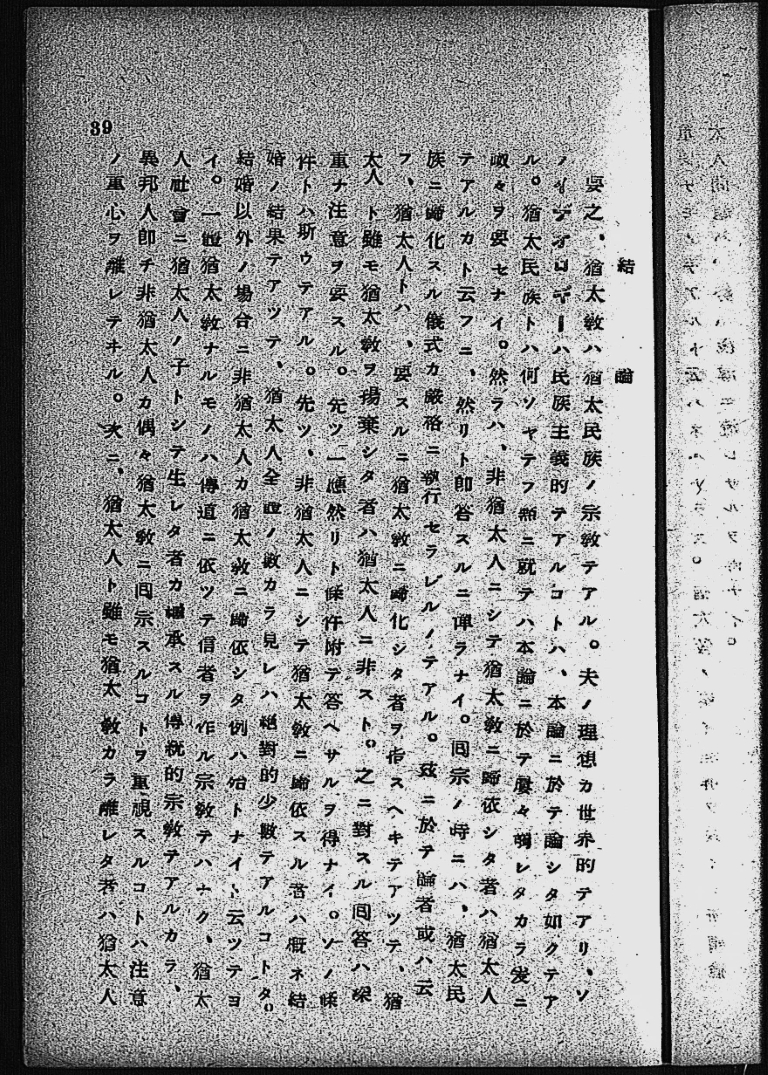 結論
要之、猶太教ハ猶太民族ノ宗教テアル。夫ノ理想カ世界的テアリ、ソ
ノイデオロギーハ民族主義的テアルコトハ、本論ニ於テ論シタ如クテア
ル。猶太民族トハ何ソヤテフ點ニ就テハ本論ニ於テ屢々觸レタカラ茲ニ
喋々ヲ要セナイ。然ラハ、非猶太人ニシテ猶太教ニ歸依シタ者ハ猶太人
テアルカト云フニ、然リト卽答スルニ憚ラナイ。囘宗ノ時ニハ、猶太民
族ニ歸化スル儀式カ嚴格ニ執行セラレルノテアル。茲ニ於テ論者或ハ云
フ、猶太人トハ、要スルニ猶太教ニ歸化シタ者ヲ指スヘキテアツテ、猶
太人ト雖モ猶太教ヲ揚棄シタ者ハ猶太人ニ非スト。之ニ對スル囘答ハ深
重ナ注意ヲ要スル。先ツ一應然リト條件附テ答ヘサルヲ得ナイ。ソノ條
件トハ斯ウテアル。先ツ、非猶太人ニシテ猶太教ニ歸依スル者ハ概ネ結
婚ノ結果テアツテ、猶太人全體ノ數カラ見レハ絕對的少數テアルコトタ。
結婚以外ノ場合ニ非猶太人カ猶太教ニ歸依シタ例ハ殆トナイト云ツテヨ
イ。一體猶太教ナルモノハ傳道ニ依ツテ信者ヲ作ル宗教テハナク、猶太
人社會ニ猶太人ノ子トシテ生レタ者カ繼承スル傳統的宗教テアルカラ、
異邦人卽チ非猶太人カ偶々猶太教ニ囘宗スルコトヲ重視スルコトハ注意
ノ重心ヲ離レテヰル。次ニ、猶太人ト雖モ猶太教カラ離レタ者ハ猶太人
39